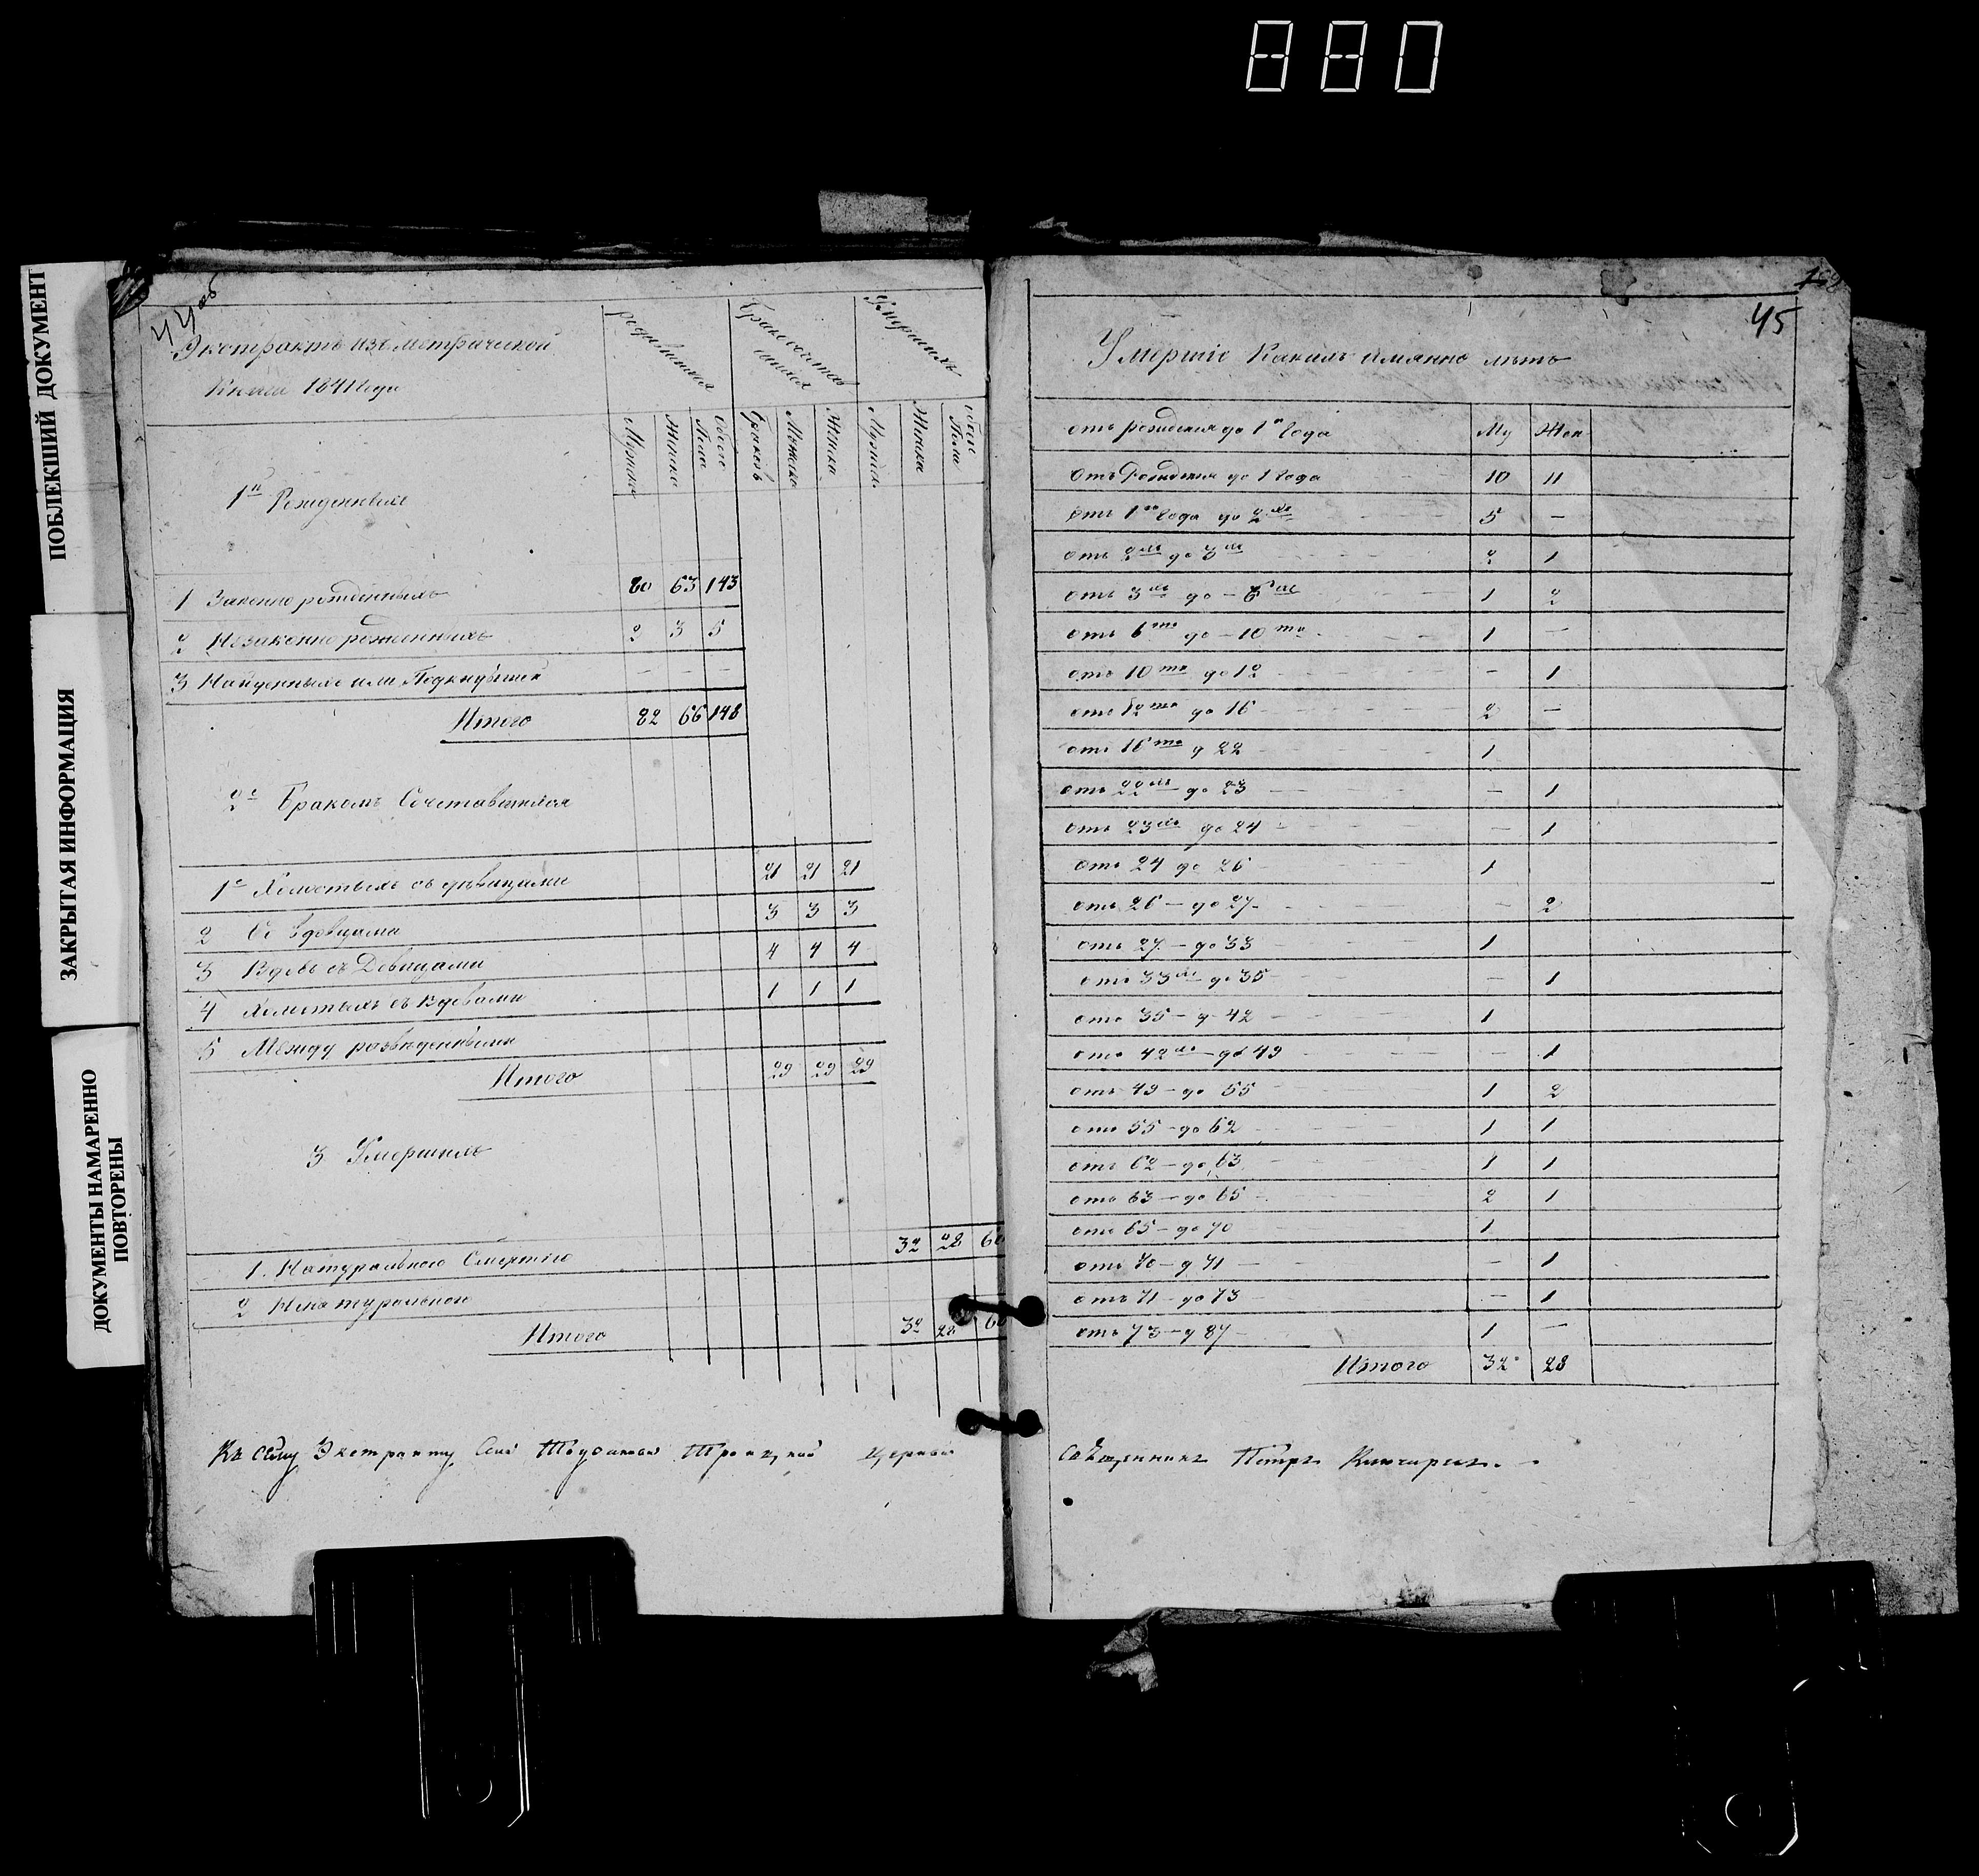 880
ПОБЛЕКШИЙ ДОКУМЕНТ
ЗАКРЫТАЯ ИНФОРМАЦИЯ
ДОКУМЕНТЫ НАМАРЕННО
ПОВТОРЕНЫ
44 об
Экстрактъ изъ метрической
Книги 1841 года
родившихся
Бракосочета
вшихся
Умершихъ
Мужска Женска Обоего Пола Браковъ Мужска Женска Мужска Женска Обоего Пола
1й Рожденныхъ
1 Законно рожденныхъ 80 63 143
2 Незаконно рожденныхъ 2 3 5
3 Найденныхъ или Подкидышей — — —
Итого 82 66 148
2е Бракомъ Сочетавшихся
1е Холостыхъ съ девицами 21 21 21
2 Съ вдовцами 3 3 3
3 Вдовъ съ Девицами 4 4 4
4 Холостыхъ съ вдовами 1 1 1
5 Между разведенными
Итого 29 29 29
3 Умершихъ
1. Натуральною Смертью 32 28 60
2 Ненатуральною
Итого 32 28 60
Къ сему Экстракту Троицкой церкви
45
Умершіе Какихъ имянно лѣтъ
отъ рождения до 1го года Му Жен
Отъ Рождения до 1 года 10 11
Отъ 1го года до 2хъ 5 —
отъ 2хъ до 3хъ 2 1
отъ 3хъ до — 6 1 2
отъ 6ти до — 10ти 1 —
отъ 10ти до 12 — 1
отъ 12ти до 16 2 —
отъ 16ти д 22 1
отъ 22хъ до 23 — 1
отъ 23хъ до 24 — 1
отъ 24 до 26 1
отъ 26 — до 27 — 2
отъ 27 — до 33 1
отъ 33хъ до 35 — 1
отъ 35 — д 42 1
отъ 42хъ — до 49 — 1
отъ 49 — до 55 1 2
отъ 55 — до 62 1 1
отъ 62 — до 63 1 1
отъ 63 — до 65 2 1
отъ 65 — до 70 1
отъ 70 — д 71 — 1
отъ 71 — до 73 — 1
отъ 73 — д 87 1 —
Итого 32 28
священникъ Петръ